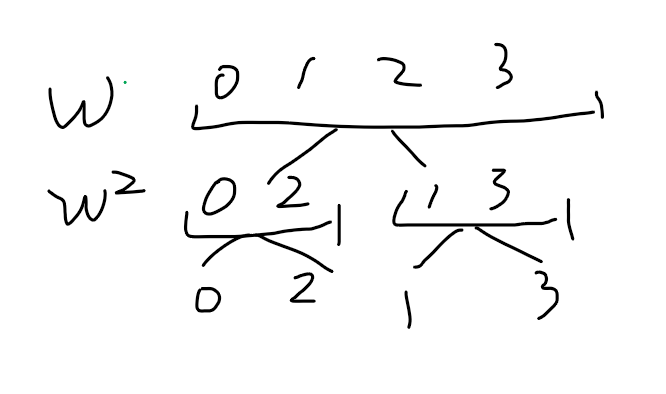 W 0 1 2 3
W² 0 2 1 3
0 2 1 3